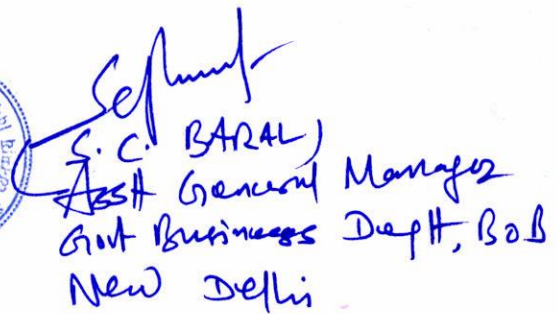 S. C. BARAL)
Asstt General Manager
Govt Business Deptt, BOB
New Delhi